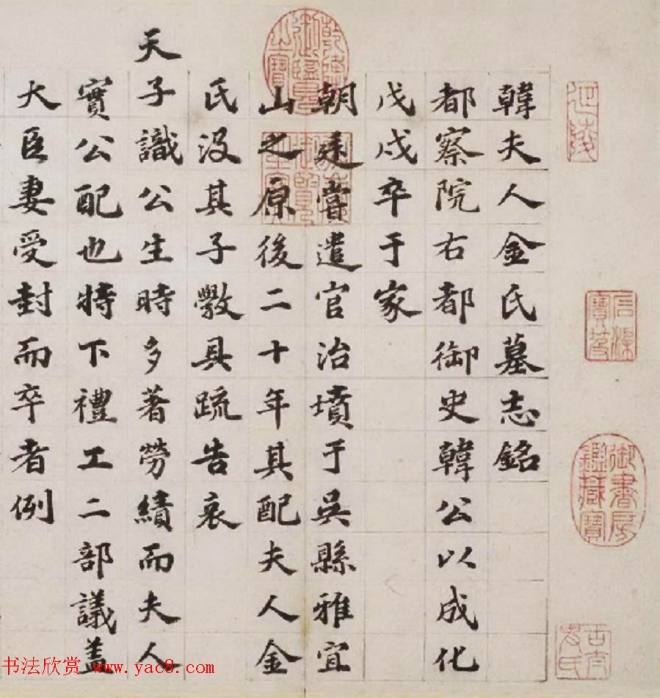 韓夫人金氏墓志銘
都察院右都御史韓公以成化
戊戌卒于家
朝廷嘗遣官治墳于吳縣雅宜
山之原後二十年其配夫人金
氏沒其子斆具疏告哀
天子識公生時多著勞績而夫人
實公配也特下禮工二部議盖
大臣妻受封而卒者例
御書房鑑藏寶
石渠寶笈
书法欣赏 www.yac8.com